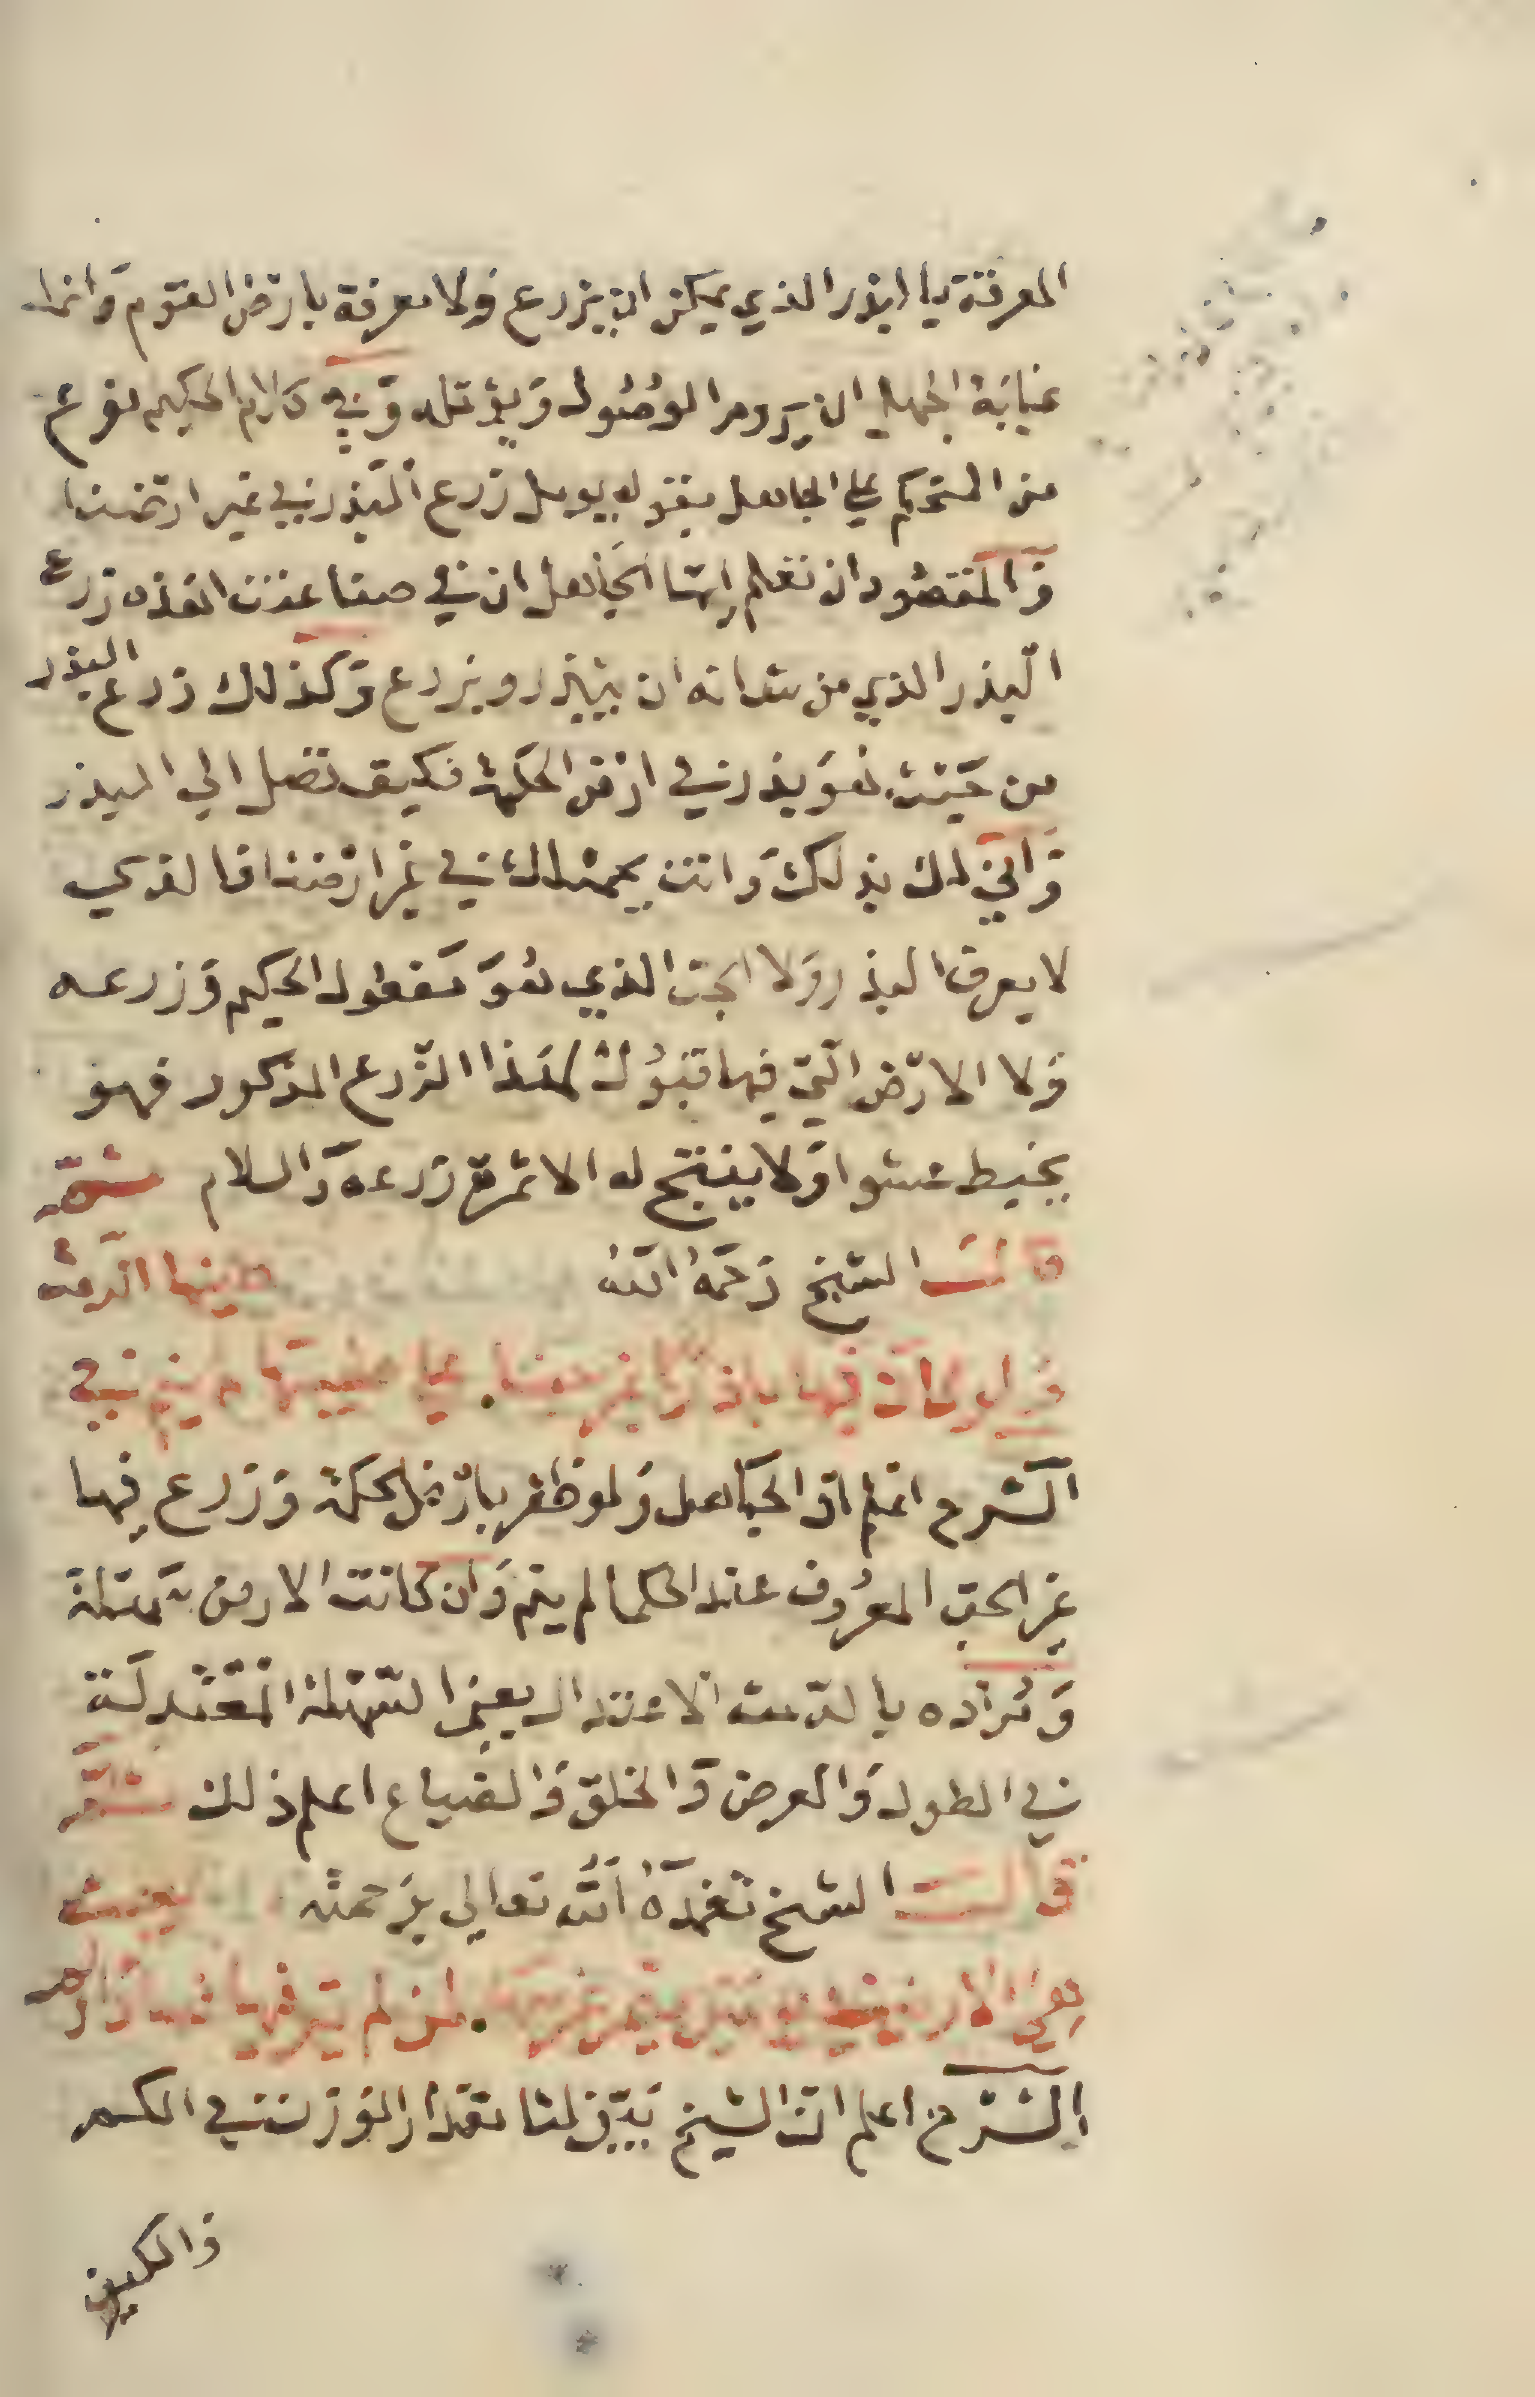 المعرفة با البذر الذي يمكن ان يزرع ولا معرفة بارض القوم وانما
غيابة الجهل ان يروم الوصول ويؤمله وفي كلام الحكيم نوع
من التحكم علي الجاهل بقوله يومل زرع البذر في غير ارضنا
والمقصود ان تعلم ايها الجاهل ان في صناعتنا هذه زرع
البذر الذي من شانه ان يبذر ويزرع وكذلك زرع البذر
من حيث هو بذر في ارض الحكمة فكيف تصل الي البذر
واني لك بذلك وانت بجهلك في غير ارضنا فالذي
لا يعرف البذر ولا الحب الذي هو مفعول الحكيم وزرعه
ولا الارض التي فيها قبول لهذا الزرع المذكور فهو
يخبط عشوا ولا ينتج له الا ثمرة زرعه والسلام شعر
قال الشيخ رحمه الله
ولو كان فيها باذرا غير حبنا علي طيبها لم ينم في
الشرح اعلم ان الجاهل ولو ظفر بارض الحكمة وزرع فيها
غير الحب المعروف عند الحكما لم ينم وان كانت الارض سهلة
ومراده بالدمث الاعتدال يعني السهلة المعتدلة
في الطول والعرض والخلق والضياع اعلم ذلك شعر
قال الشيخ تغمده الله تعالي برحمته
الشرح اعلم ان الشيخ بين لنا مقدار الوزن في الكم
والكيف